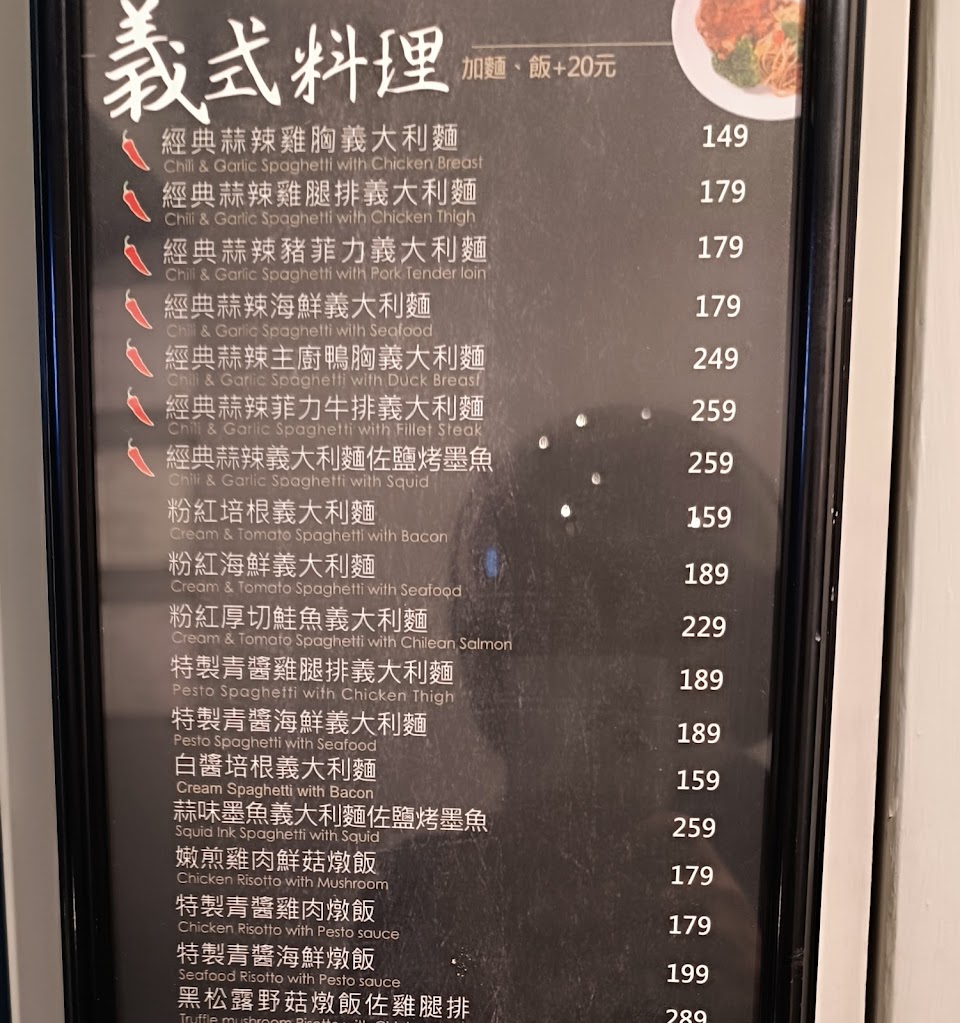 義式料理 加麵、飯+20元
經典蒜辣雞胸義大利麵 149
Chili & Garlic Spaghetti with Chicken Breast
經典蒜辣雞腿排義大利麵 179
Chili & Garlic Spaghetti with Chicken Thigh
經典蒜辣豬菲力義大利麵 179
Chili & Garlic Spaghetti with Pork Tender loin
經典蒜辣海鮮義大利麵 179
Chili & Garlic Spaghetti with Seafood
經典蒜辣主廚鴨胸義大利麵 249
Chili & Garlic Spaghetti with Duck Breast
經典蒜辣菲力牛排義大利麵 259
Chili & Garlic Spaghetti with Fillet Steak
經典蒜辣義大利麵佐鹽烤墨魚 259
Chili & Garlic Spaghetti with Squid
粉紅培根義大利麵 159
Cream & Tomato Spaghetti with Bacon
粉紅海鮮義大利麵 189
Cream & Tomato Spaghetti with Seafood
粉紅厚切鮭魚義大利麵 229
Cream & Tomato Spaghetti with Chilean Salmon
特製青醬雞腿排義大利麵 189
Pesto Spaghetti with Chicken Thigh
特製青醬海鮮義大利麵 189
Pesto Spaghetti with Seafood
白醬培根義大利麵 159
Cream Spaghetti with Bacon
蒜味墨魚義大利麵佐鹽烤墨魚 259
Squid Ink Spaghetti with Squid
嫩煎雞肉鮮菇燉飯 179
Chicken Risotto with Mushroom
特製青醬雞肉燉飯 179
Chicken Risotto with Pesto sauce
特製青醬海鮮燉飯 199
Seafood Risotto with Pesto sauce
黑松露野菇燉飯佐雞腿排 289
Truffle mushroom Risotto with